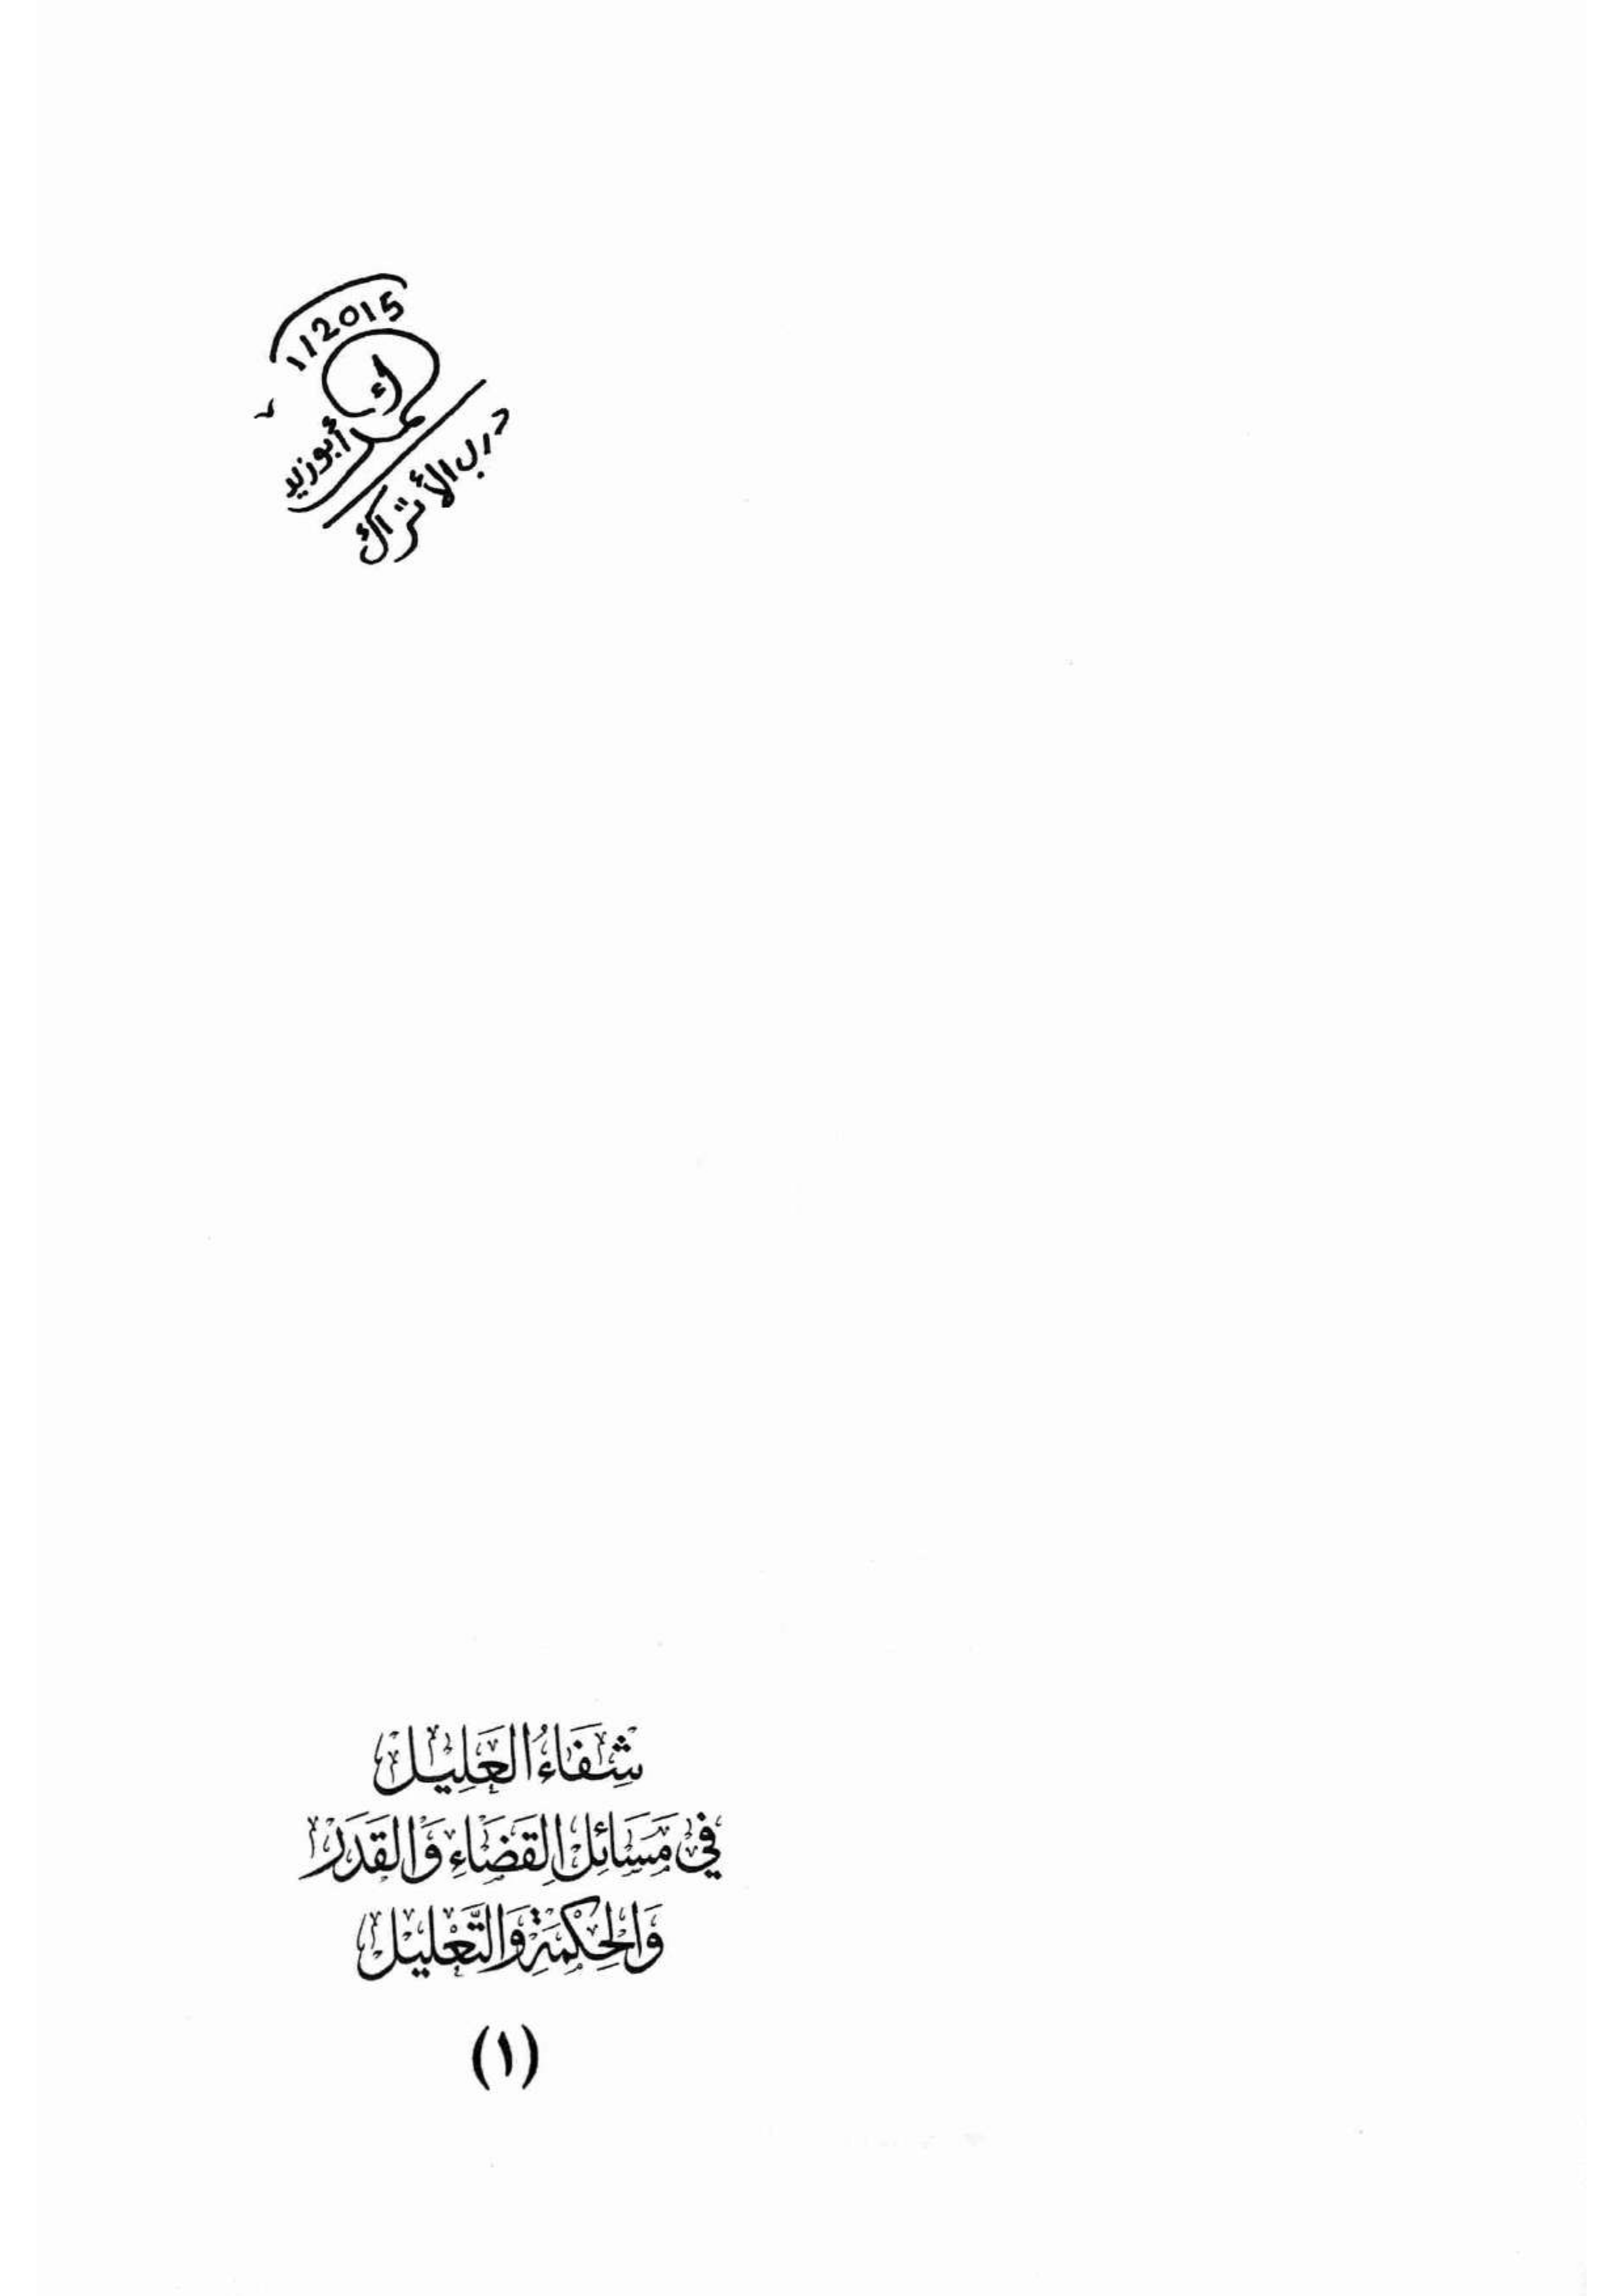 1/2015
أبوزيد
درب الأتراك
شِفَاءُ العَلِيْل
فِيْ مَسَائِلِ القَضَاءِ وَالقَدَر
وَالحِكْمَةِ وَالتَّعْلِيْل
(١)